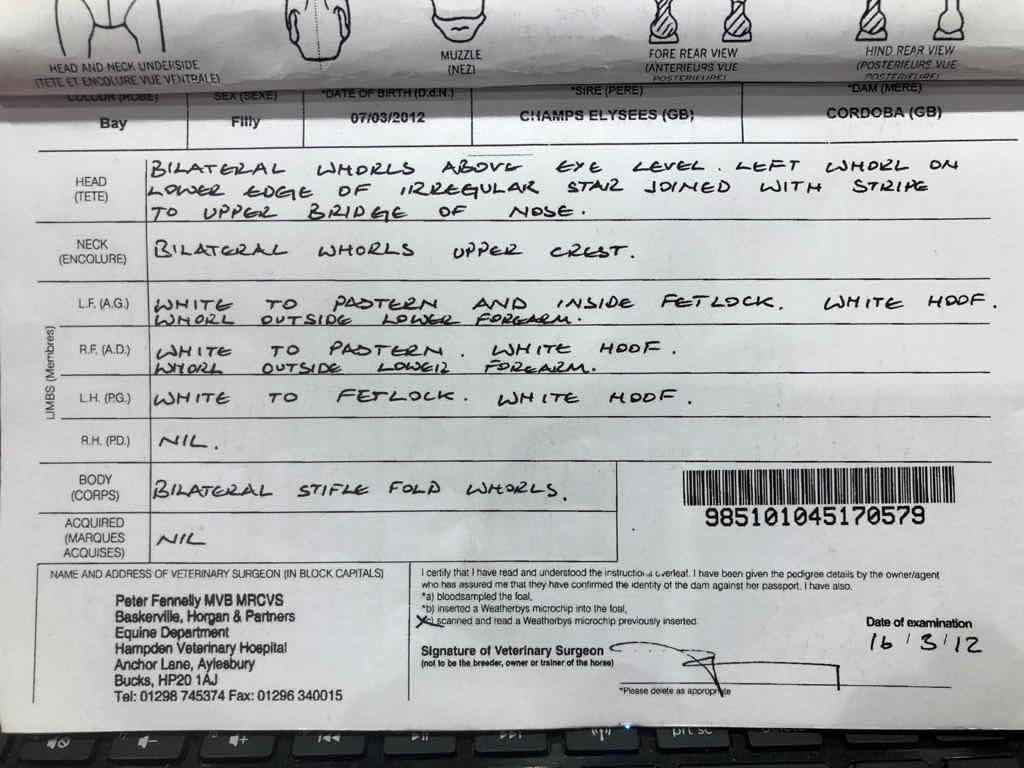 HEAD AND NECK UNDERSIDE
(TETE ET ENCOLURE VUE VENTRALE)
MUZZLE
(NEZ)
FORE REAR VIEW
(ANTERIEURS VUE
POSTERIEURE)
HIND REAR VIEW
(POSTERIEURS VUE
POSTERIEURE)
COLOUR (ROBE)
SEX (SEXE)
*DATE OF BIRTH (D.d.N.)
*SIRE (PERE)
*DAM (MERE)
Bay
Filly
07/03/2012
CHAMPS ELYSEES (GB)
CORDOBA (GB)
HEAD
(TETE)
BILATERAL WHORLS ABOVE EYE LEVEL. LEFT WHORL ON
LOWER EDGE OF IRREGULAR STAR JOINED WITH STRIPE
TO UPPER BRIDGE OF NOSE.
NECK
(ENCOLURE)
BILATERAL WHORLS UPPER CREST.
LIMBS (Membres)
L.F. (A.G.)
WHITE TO PASTERN AND INSIDE FETLOCK. WHITE HOOF.
WHORL OUTSIDE LOWER FOREARM.
R.F. (A.D.)
WHITE TO PASTERN. WHITE HOOF.
WHORL OUTSIDE LOWER FOREARM.
L.H. (P.G.)
WHITE TO FETLOCK. WHITE HOOF.
R.H. (P.D.)
NIL.
BODY
(CORPS)
BILATERAL STIFLE FOLD WHORLS.
985101045170579
ACQUIRED
(MARQUES
ACQUISES)
NIL
NAME AND ADDRESS OF VETERINARY SURGEON (IN BLOCK CAPITALS)
Peter Fennelly MVB MRCVS
Baskerville, Horgan & Partners
Equine Department
Hampden Veterinary Hospital
Anchor Lane, Aylesbury
Bucks, HP20 1AJ
Tel: 01298 745374 Fax: 01296 340015
I certify that I have read and understood the instructions overleaf. I have been given the pedigree details by the owner/agent
who has assured me that they have confirmed the identity of the dam against her passport. I have also.
*a) bloodsampled the foal,
*b) inserted a Weatherbys microchip into the foal,
c) scanned and read a Weatherbys microchip previously inserted.
Date of examination
16/3/12
Signature of Veterinary Surgeon
(not to be the breeder, owner or trainer of the horse)
*Please delete as appropriate
prt sc